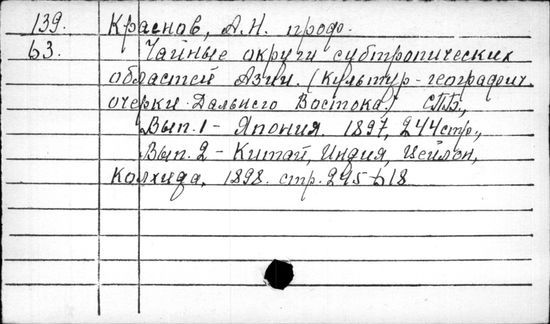 139. Краснов, А.Н. продо.
63. Чайные округи субтропических
областей Азии. (Культур-географич.
очерки Дальнего Востока.) СПБ.,
Вып. 1 - Япония. 1897, 244 стр.,
Вып. 2 - Китай, Индия, Цейлон,
Колхида, 1898. стр. 245-618